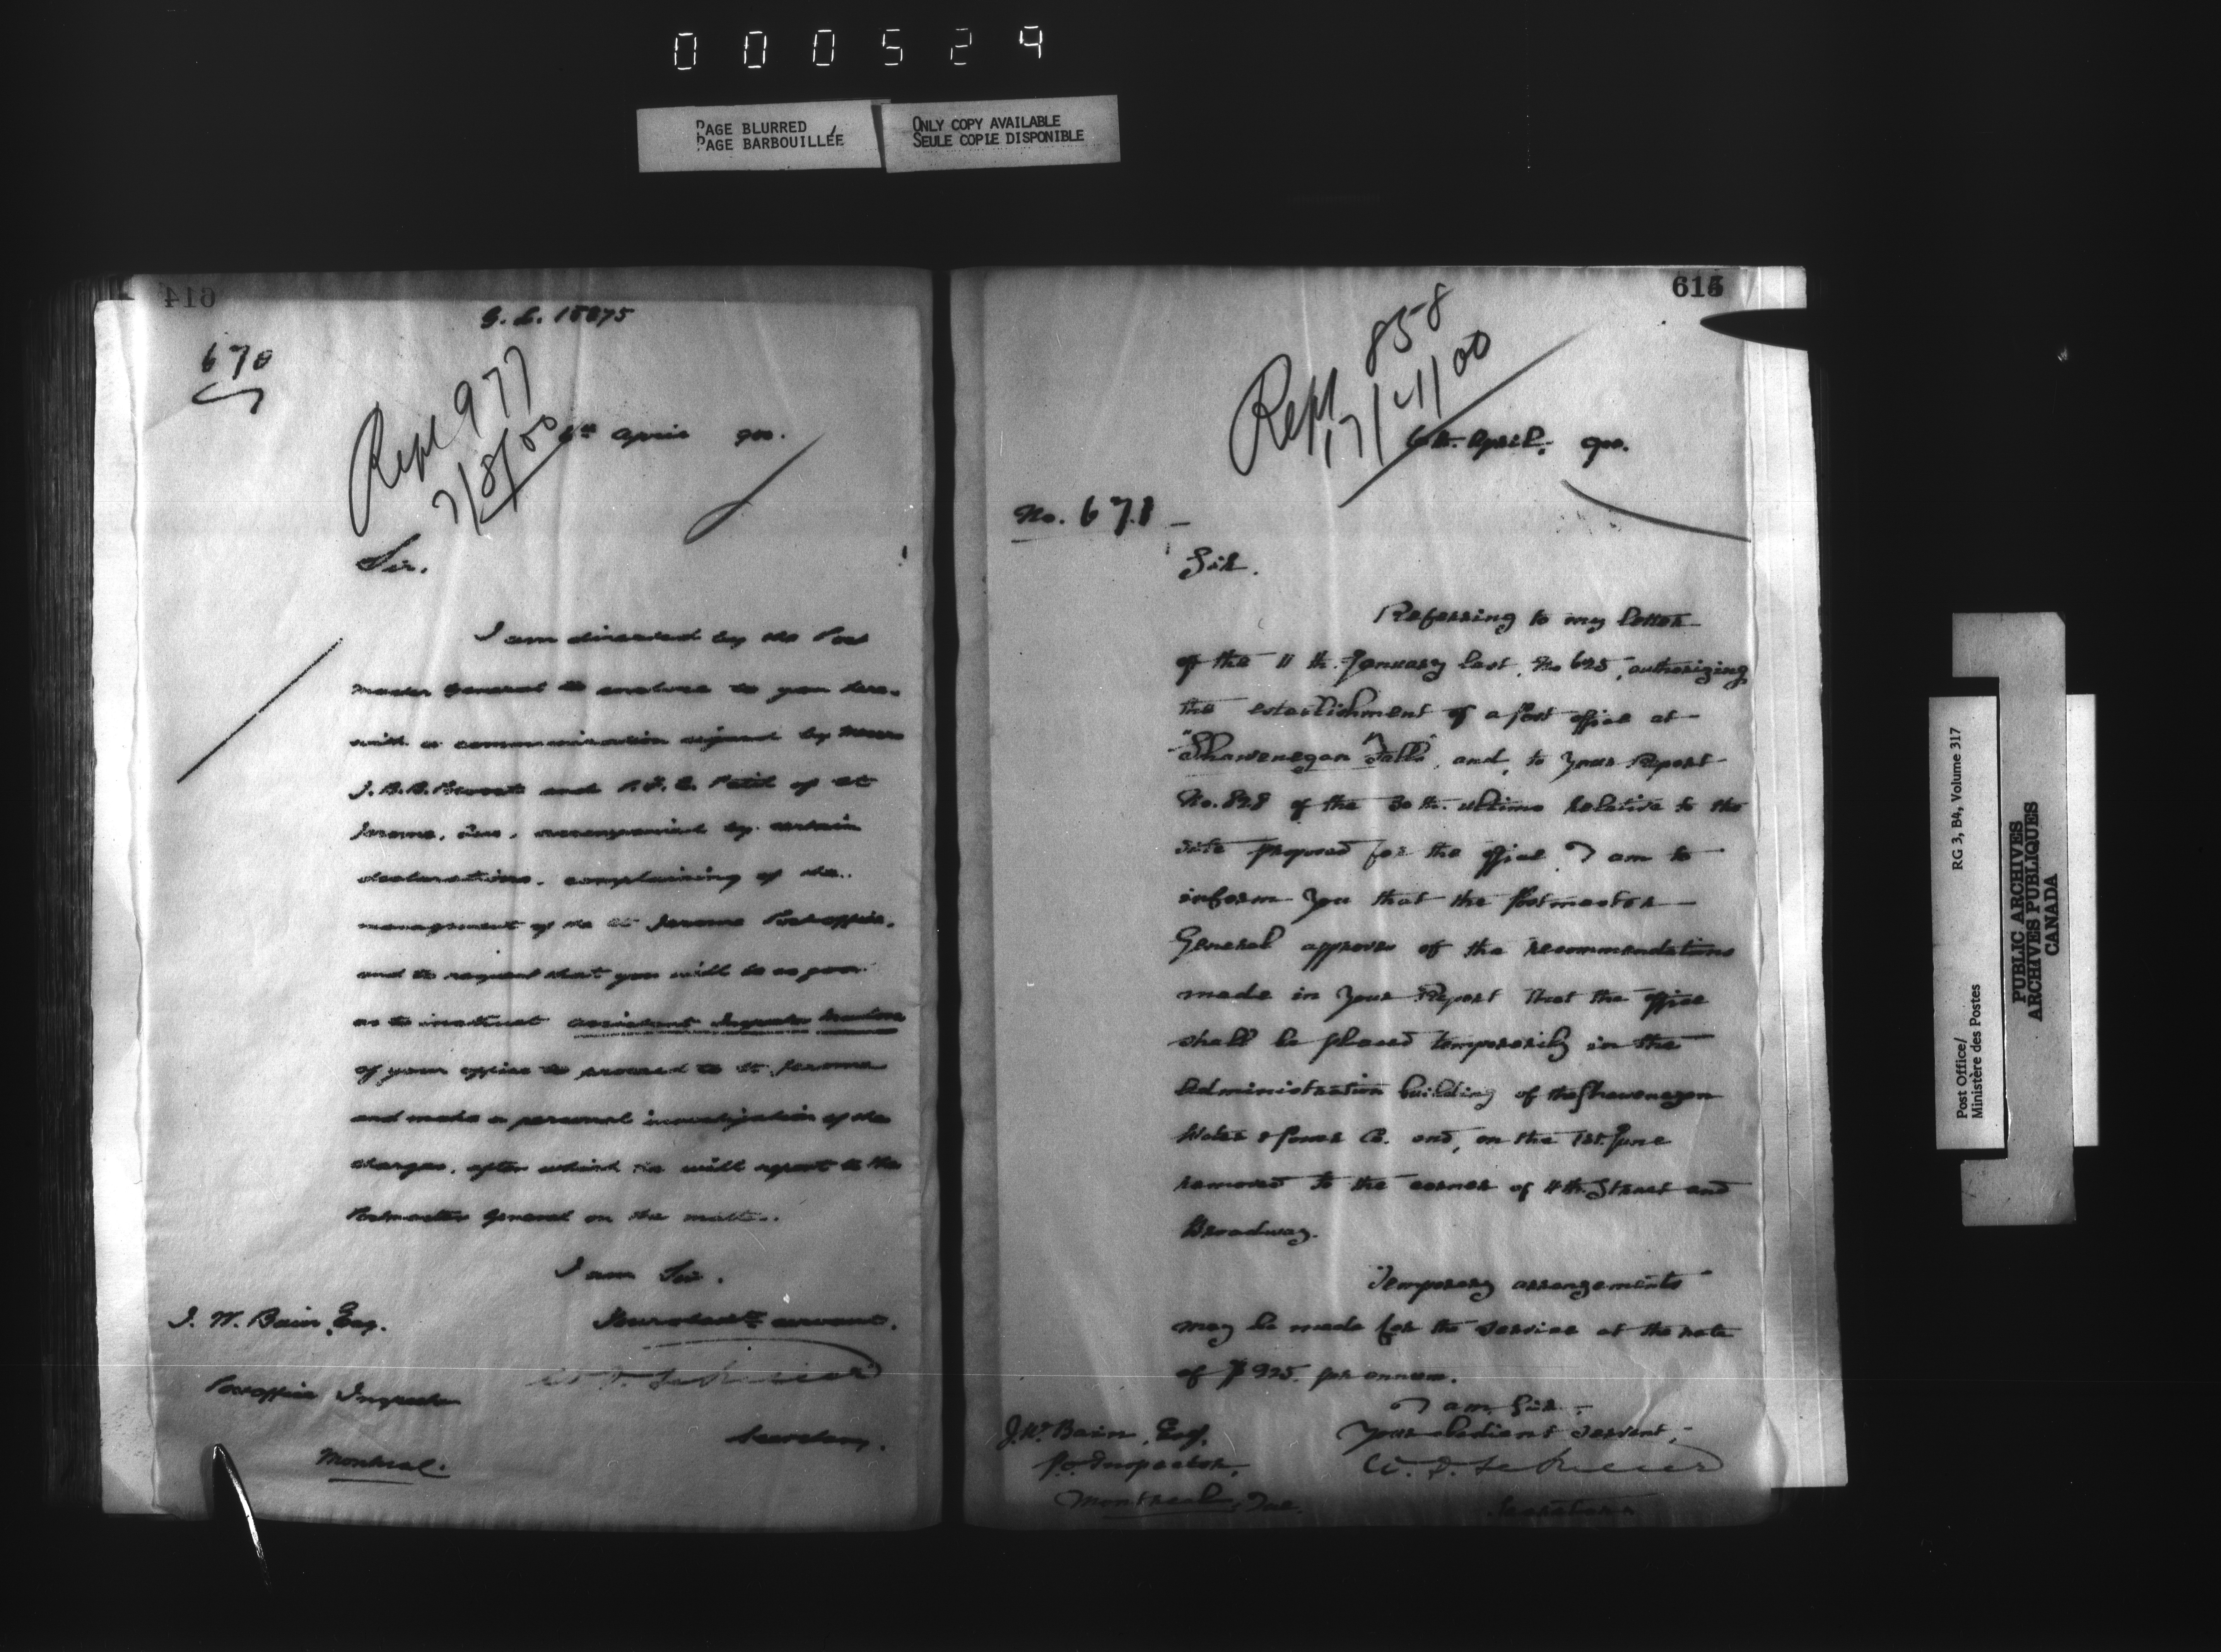 000529
PAGE BLURRED
PAGE BARBOUILLÉE
ONLY COPY AVAILABLE
SEULE COPIE DISPONIBLE
614
G. L. 15875
670
Rept 977
7/8/00
6th April 900.
Sir.
I am directed by the Post
master General to enclose to you here-
with a communication signed by Messrs
J. B. B. Prevost and Petit of St
Jerome, Que, accompanied by certain
declarations, complaining of the
management of the St Jerome Post office,
and to request that you will be so good
as to instruct assistant Inspector
of your office to proceed to St. Jerome
and make a personal investigation of the
charges, after which he will report to the
Postmaster General on the matter.
I am Sir.
Your obedt servant.
Secretary.
J. W. Bain, Esq.
Post office Inspector
Montreal.
615
Rept 858
17/4/00
6th. April, 900.
No. 671
Sir.
Referring to my letter
of the 11th. January last, No 625, authorizing
the establishment of a post office at
"Shawenegan Falls", and, to your Report
No. 828 of the 30th. ultimo relative to the
site proposed for the office, I am to
inform you that the Postmaster
General approves of the recommendations
made in your Report that the office
shall be placed temporarily in the
Administration building of the Shawenegan
Water & Power Co. and, on the 1st. June
removed to the corner of 4th. Street and
Broadway.
Temporary arrangements
may be made for the service at the rate
of $925. per annum.
I am, Sir,
Your obedient servant,
Secretary
J. W. Bain, Esq,
P.O. Inspector,
Montreal, Que.
RG 3, B4, Volume 317
Post Office/
Ministère des Postes
PUBLIC ARCHIVES
ARCHIVES PUBLIQUES
CANADA